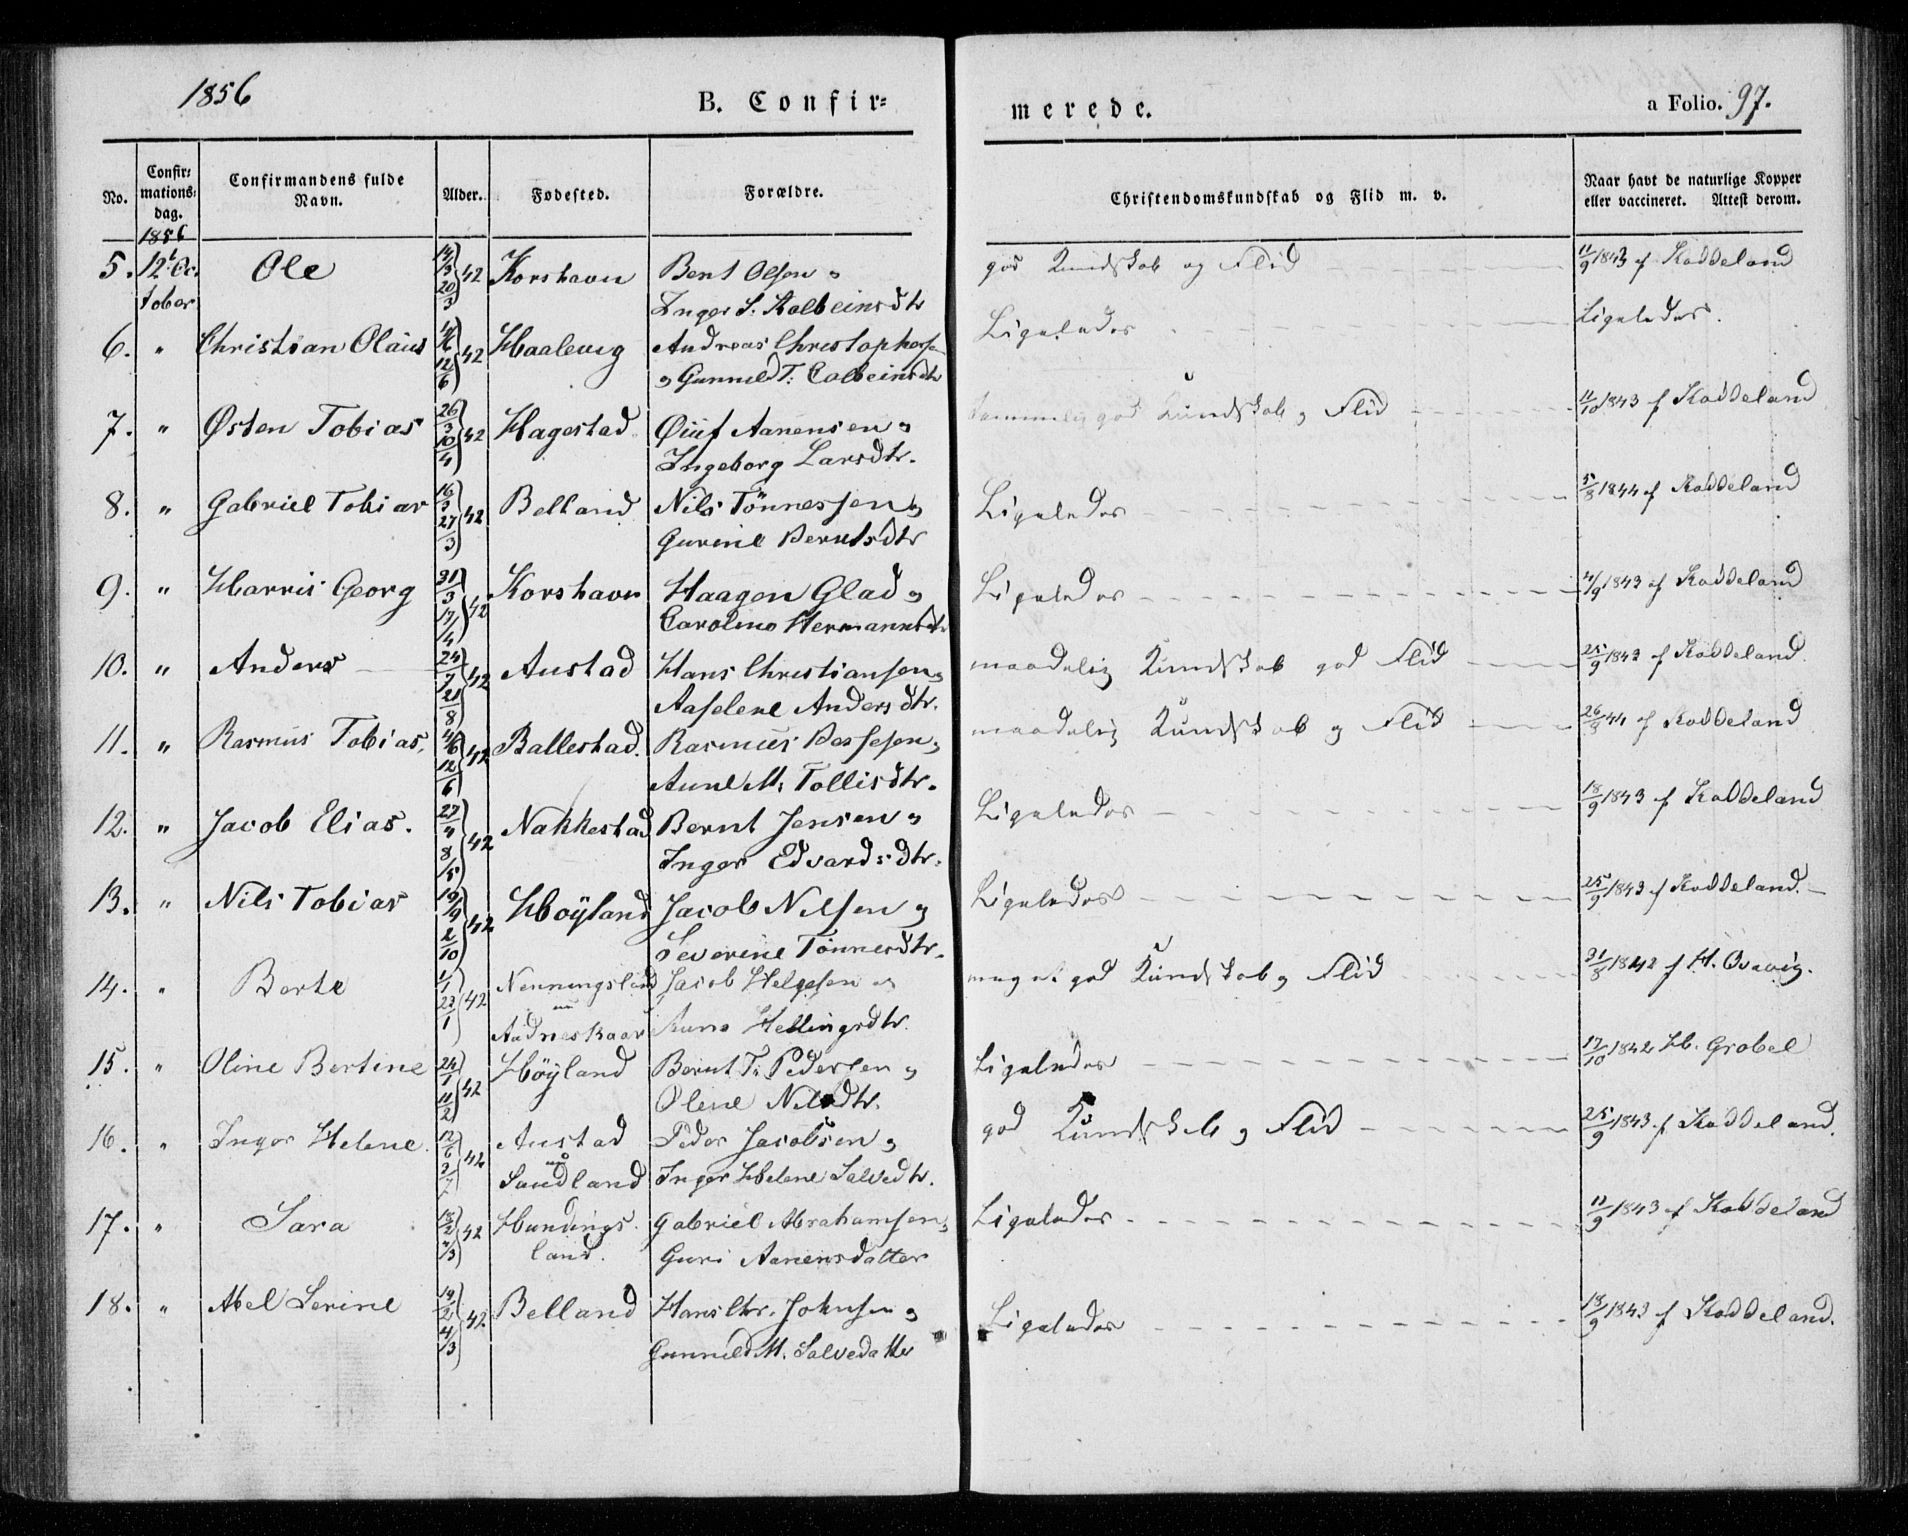 1856
B. Confir=
merede.
a Folio. 97.
No.
Confir=
mations=
dag.
1856
Confirmandens fulde
Navn.
Alder.
Fødested.
Forældre.
Christendomskundskab og Flid m. v.
Naar havt de naturlige Kopper
eller vaccineret. Attest derom.
5. 12t Oc- Ole 42 Korshavn Bent Olsen og god Kundskab og Flid 11/9 1843 af Koddeland
tober 20/3 Inger S. Kolbeinsdtr
6. " Christian Olaus 42 Haaleviig Andreas Christophersen Ligeledes Ligeledes.
12/6 og Gunnild T: Colbeinsdtr
7. " Østen Tobias 26/3 42 Hagestad Øiuf Aanensen og temmelig god Kundskab og Flid 11/10 1843 af Koddeland
10/4 Ingeborg Larsdtr.
8. " Gabriel Tobias 16/3 42 Belland Nils Tönnessen og Ligeledes 5/8 1844 af Koddeland
27/3 Gurine Berntsdtr
9. " Harris Georg 31/3 42 Korshavn Haagen Glad og Ligeledes 11/9 1843 af Koddeland
17/4 Caroline Hermannsdtr
10. " Anders 24/7 42 Austad Hans Christiansen og maadelig Kundskab god Flid 25/9 1843 af Koddeland.
21/8 Aaselene Andersdtr.
11. " Rasmus Tobias. 42 Ballestad. Rasmus Bessesen og maadelig Kundskab og Flid 26/8 44 af Koddeland
12/6 Aune M: Tollisdtr.
12. " Jacob Elias. 42 Nakkestad Bernt Jensen og Ligeledes 18/9 1843 af Koddeland
8/5 Inger Edvardsdtr.
13. " Nils Tobias 19/9 42 Höyland Jacob Nilsen og Ligeledes 25/9 1843 af Koddeland.
2/10 Severine Tönnesdtr.
14. " Berte 1/1 42 Nenningsland Jacob Helgesen og meget god Kundskab og Flid 31/8 1842 af H. Qvavig.
23/1 nu Aadneskaar Anna Hellingsdtr.
15. " Oline Bertine 24/1 42 Höyland Bernt T. Pedersen og Ligeledes 17/10 1842 H. Grobel
11/2 Olene Nilsdtr.
16. " Inger Helene. 12/6 42 Austad Peder Jacobsen og god Kundskab og Flid 25/9 1843 af Koddeland.
3/7 nu Sandland Inger Helene Salvesdtr.
17. " Sara 18/2 42 Hundings- Gabriel Abrahamsen og Ligeledes 11/9 1843 af Koddeland
land. Guri Aanensdatter
18. " Abel Serine 14/2 42 Belland Hans Chr. Johnsen og Ligeledes 18/9 1843 af Koddeland.
4/3 Gunnild M. Salvedatter